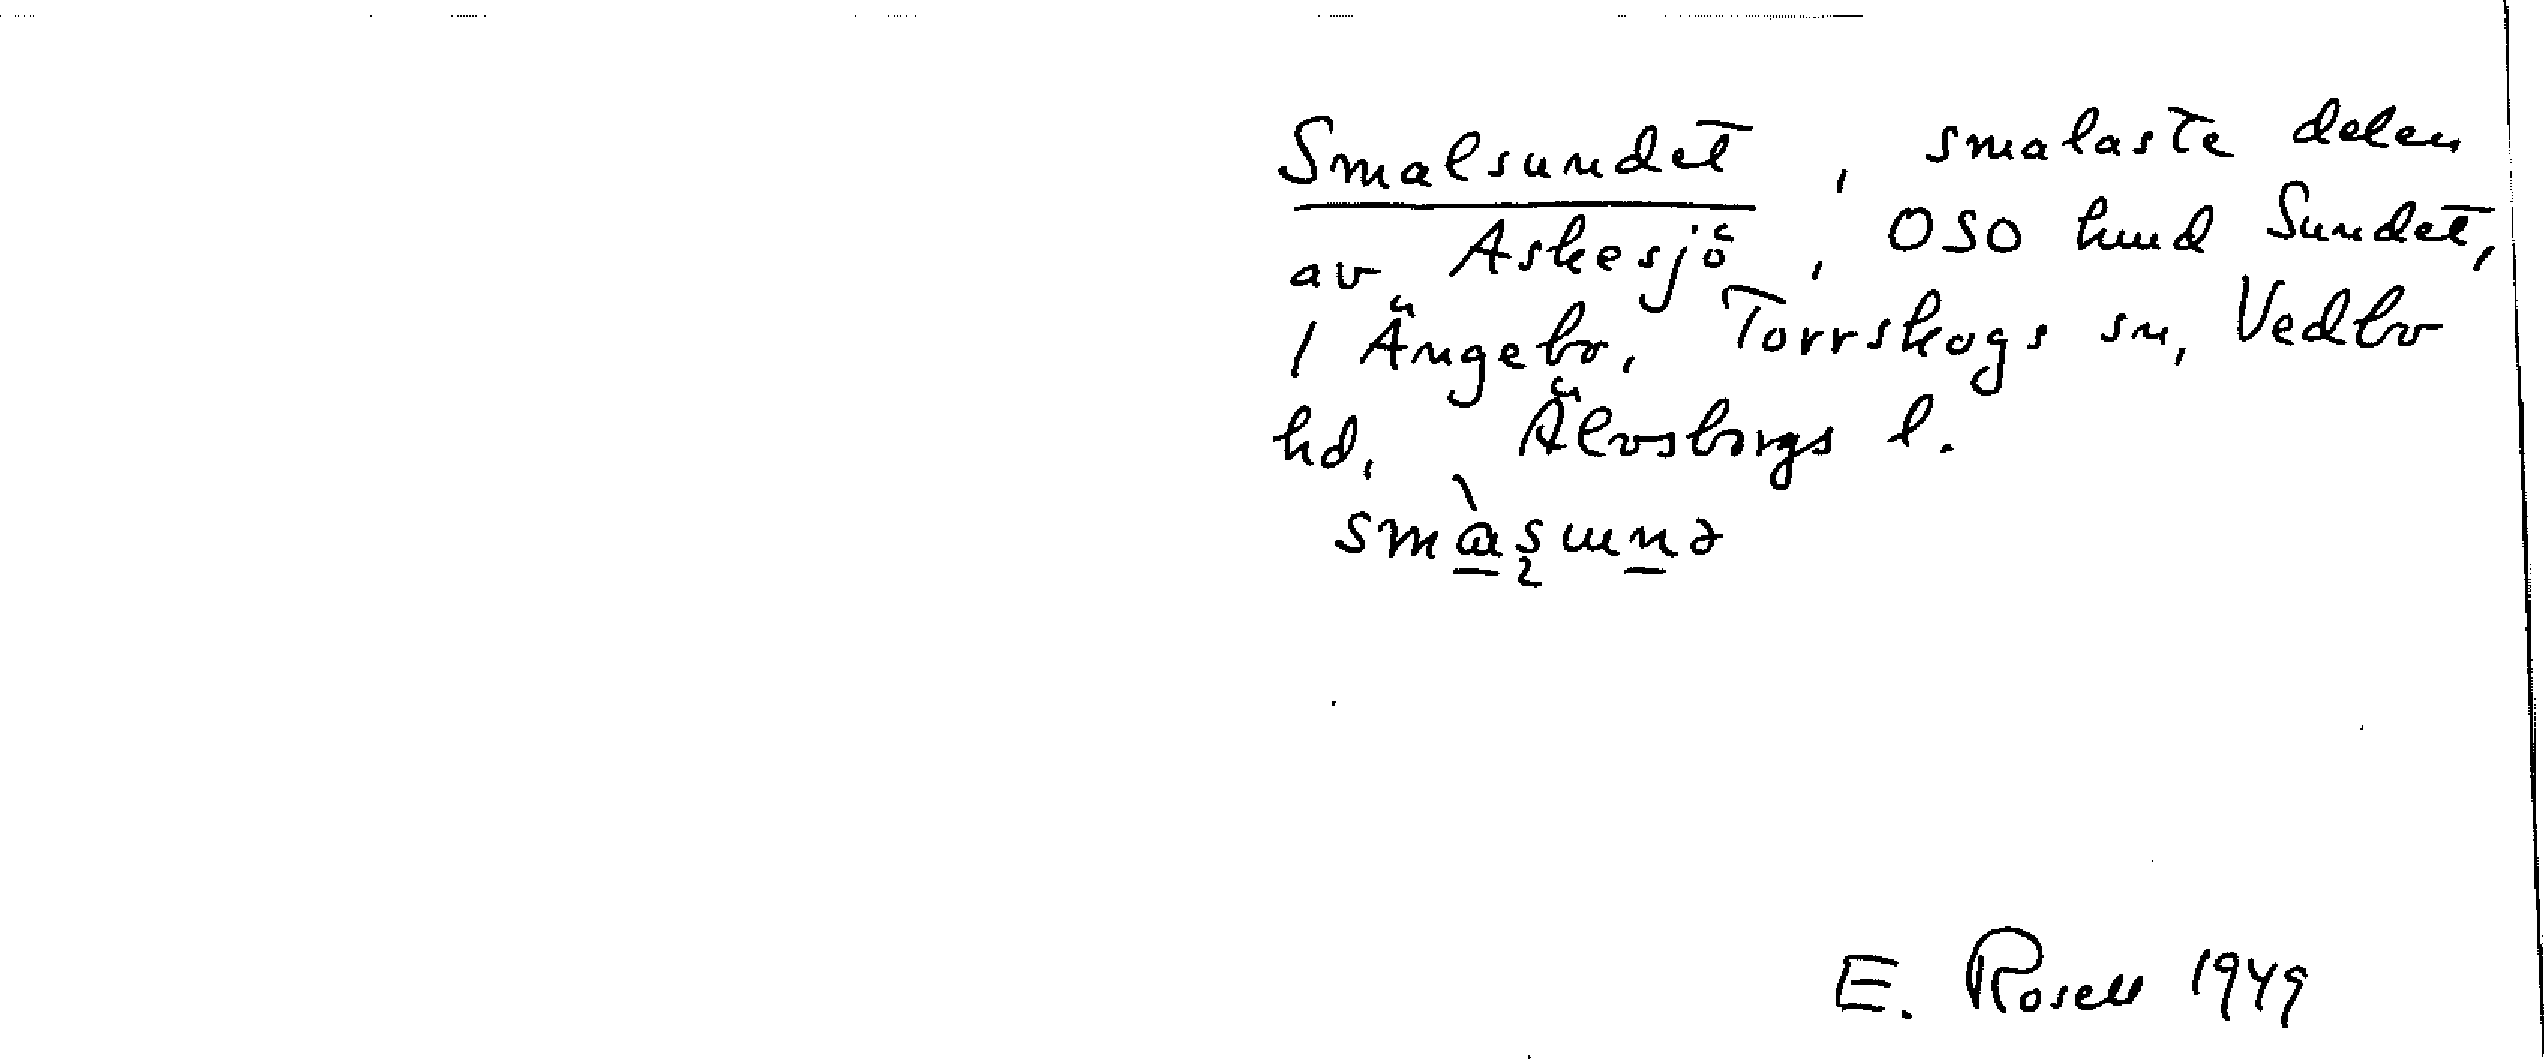 Smalsundet, smalaste delen
av Askesjö, OSO hmd Sundet,
1 Ängebo, Torrskogs sn, Vedbo
hd, Älvsborgs l.
smɑ̀sunə
E. Rosell 1949